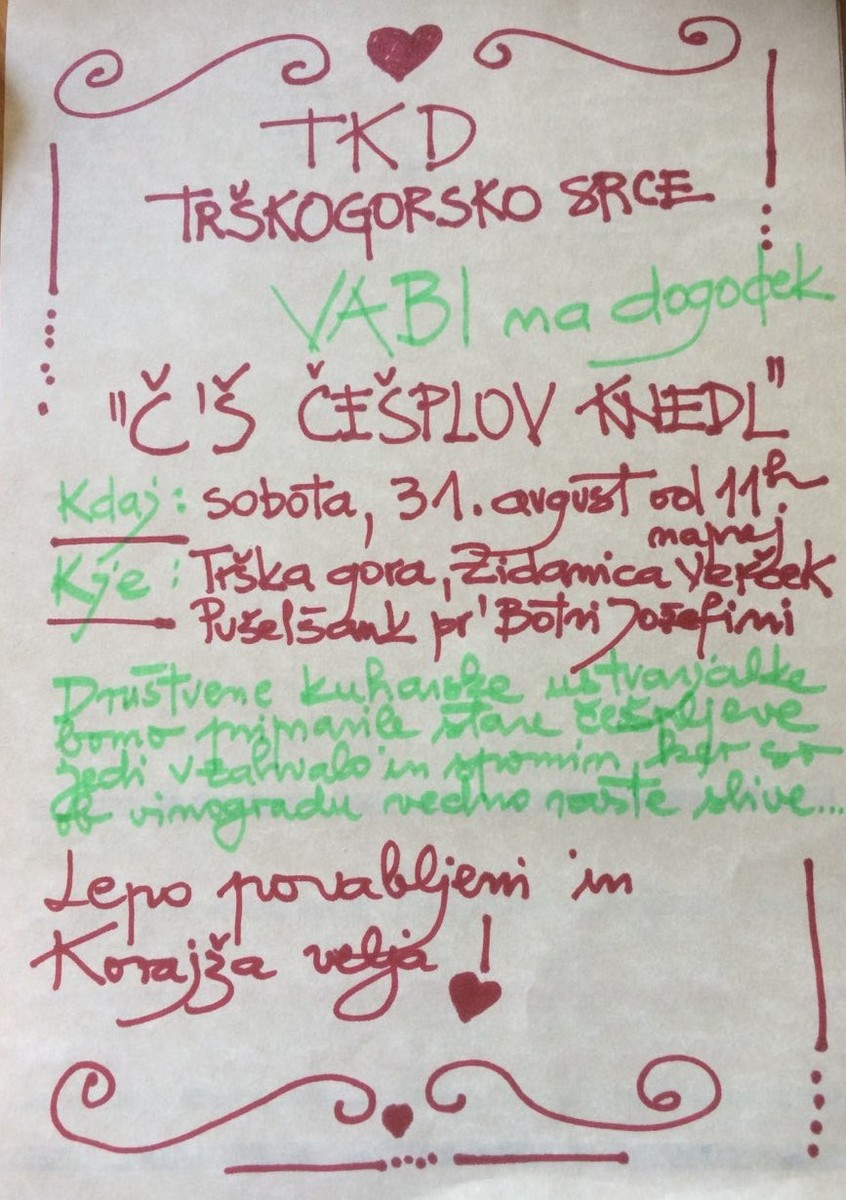 TKD
TRŠKOGORSKO SRCE
VABI na dogodek
"Č'Š ČEŠPLOV KNEDL"
Kdaj: sobota, 31. avgust od 11h
naprej
Kje: Trška gora, Zidanica Veršček
Pušelšank pr' Botri Jožefini
Društvene kuharske ustvarjalke
bomo pripravile stare češpljeve
jedi v zahvalo in spomin, ker so
ob vinogradu vedno rastle slive...
Lepo povabljeni in
Korajža velja!